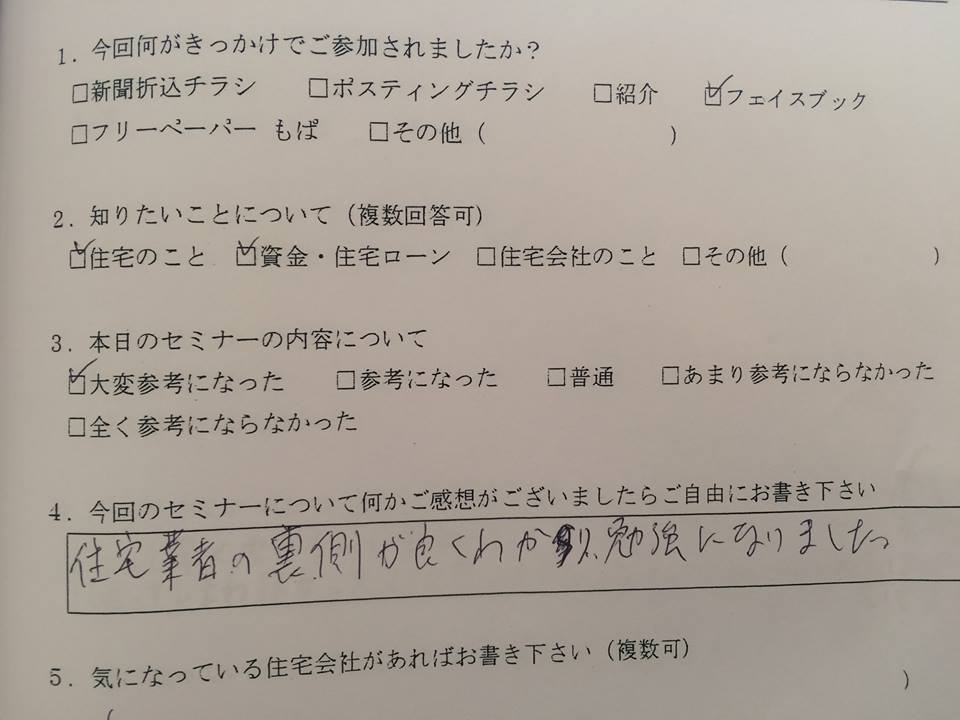 1. 今回何がきっかけでご参加されましたか?
□新聞折込チラシ □ポスティングチラシ □紹介 ☑フェイスブック
□フリーペーパー もぱ □その他 ( )
2. 知りたいことについて (複数回答可)
☑住宅のこと ☑資金・住宅ローン □住宅会社のこと □その他 ( )
3. 本日のセミナーの内容について
☑大変参考になった □参考になった □普通 □あまり参考にならなかった
□全く参考にならなかった
4. 今回のセミナーについて何かご感想がございましたらご自由にお書き下さい
住宅業者の裏側が良くわかり、勉強になりました。
5. 気になっている住宅会社があればお書き下さい (複数可)
( )